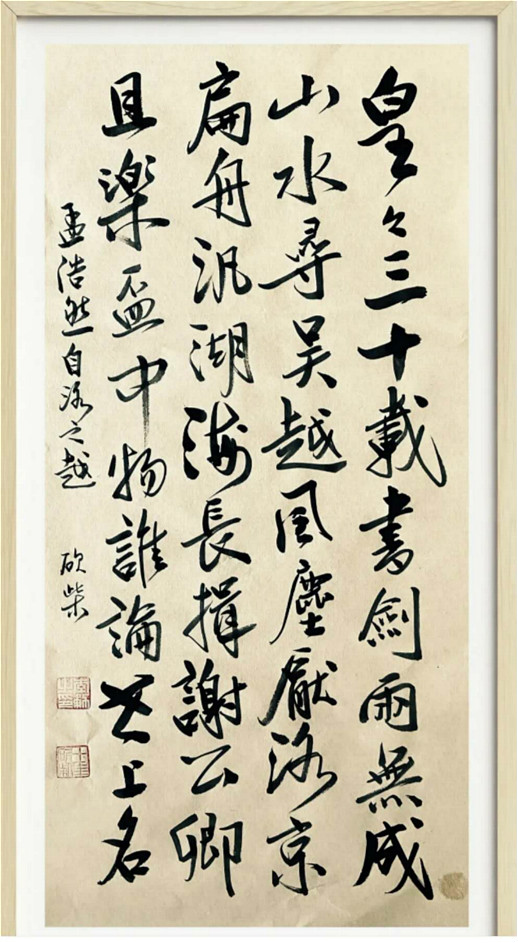 皇々三十載書劍兩無成
山水尋吳越風塵厭洛京
扁舟汎湖海長揖謝公卿
且樂盃中物誰論世上名
孟浩然自洛之越 砍柴